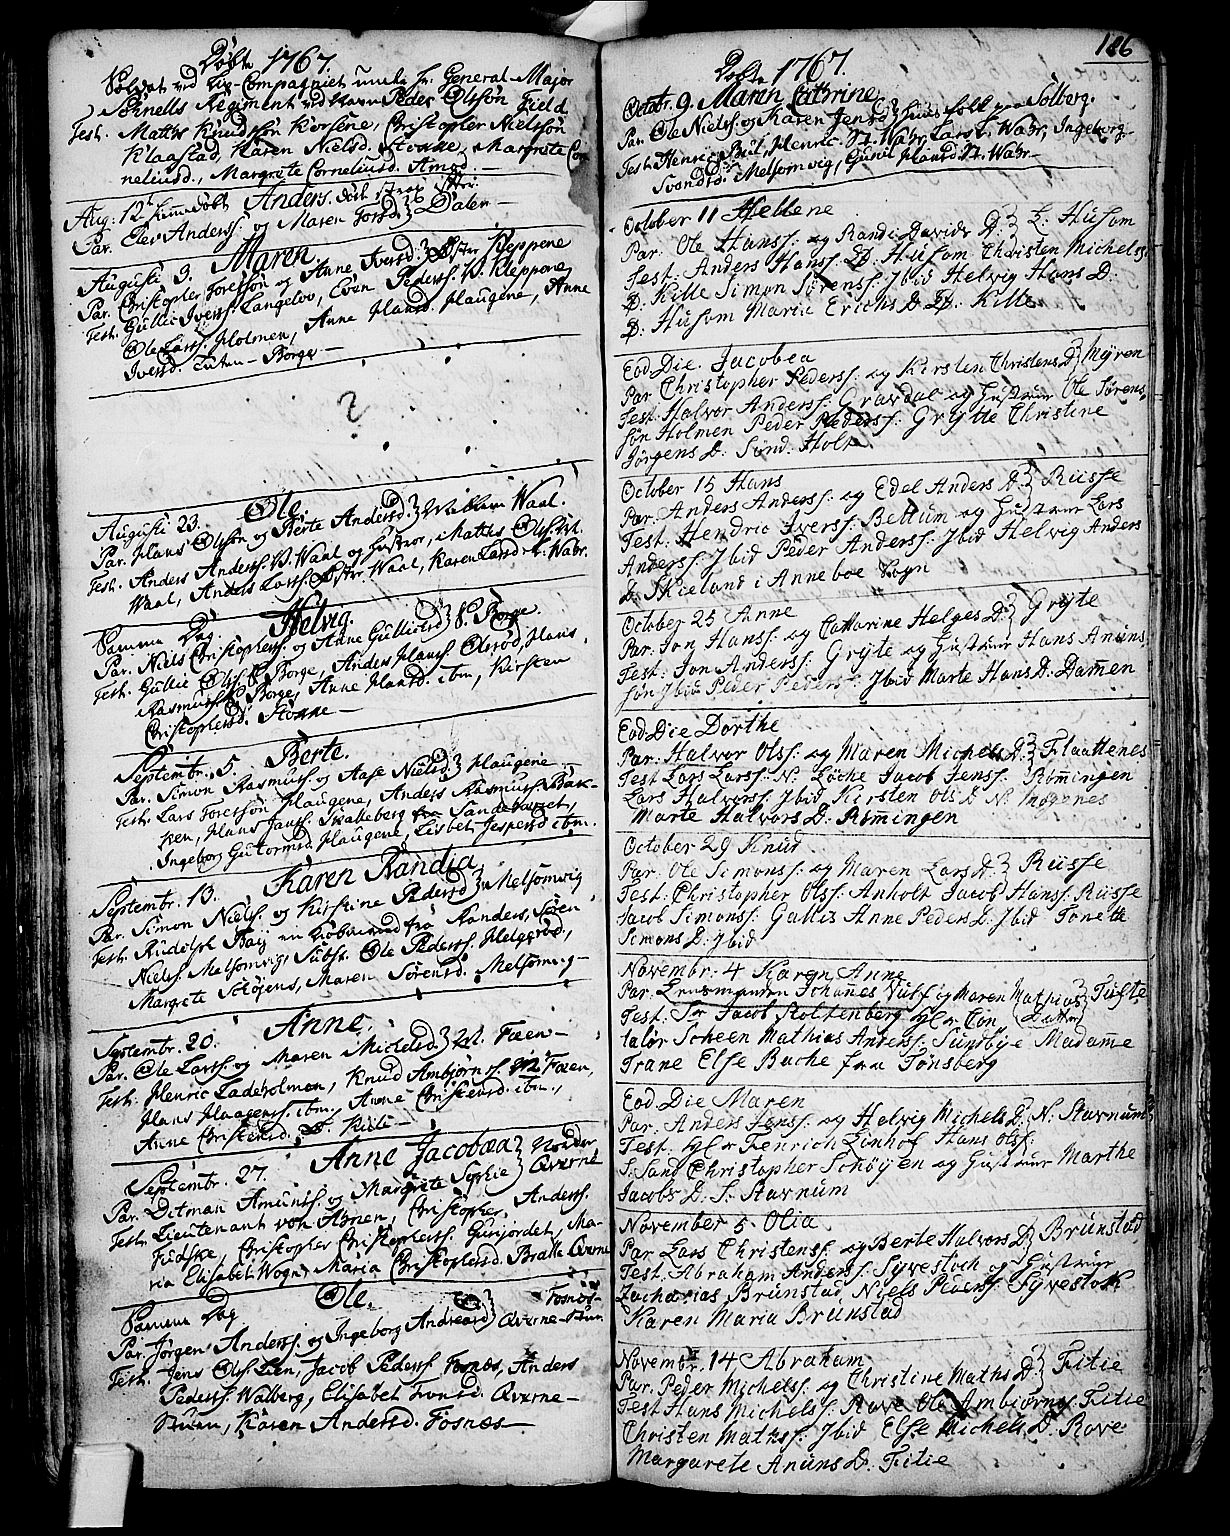 Døbte 1767.
Soldat ved Liv Compagniet under Hr. General-Major
Schnells Regiment ved Navn Peder Olssøn Field
Test. Mattis Knudssøn Korsene, Christopher Nielssøn
Klaastad, Karen Nielsd. Stokke, Margrete Cor-
neliusd., Margrete Corneliusd. Amod.
Aug: 12 hiemdøbt Anders. død strax efter.
Par. Elev Anderss. og Maren Forsd. Dalen
Augusti 9. Maren.
Par. Christopher Foretsøn og Anne Iversd. Øster Kleppene
Test. Gullic Iverss. Langeløv, Even Pederss. V. Kleppene,
Ole Larss. Holmen, Anne Hansd. Haugene, Anne
Iversd. Borge
?
Augusti 23. Ole.
Par. Hans Olssøn og Berte Andersd. Mellem Waal.
Test. Anders Anderss. V. Waal og Hustroe, Mattis Olss.
Waal, Anders Larss. Øster Waal, Karen Larsd. Wabr.
Samme Dag. Helvig.
Par. Niels Christopherss. og Anne Gullicsd. S. Borge
Test. Gullic Olss. Borge, Anders Hanss. Olerød, Hans
Rasmuss. Borge, Anne Hansd. ibm, Kirsten
Christophersd. Stokke
Septembr. 5. Berte.
Par. Simon Rasmuss. og Aase Nielsd. Haugene
Test. Lars Foretsøn Haugene, Anders Rasmuss. Bak-
ken, Hans Janss. Skalleberg fra Sandeherret,
Ingeborg Gutormsd. Haugene, Lisbet Jespersd ibm.
Septembr. 13. Karen Randia
Par. Simon Nielss. og Kirstine Pedersd. Melsomvig
Test. Rudolph Baÿ en Kiøbmand fra Randers, Søren
Nielss. Melsomvig, Subst. Ole Pederss. Helgerød,
Margrete Schøjens, Maren Sørensd. Melsomvig
Septembr. 20. Anne.
Par. Ole Larss. og Maren Michelsd. N. Fæen
Test. Henric Ladeholmen, Knud Ambjørnss. N. Fæen,
Hans Haagenss. ibm., Anne Christensd. ibm.,
Anne Christensd. Ø. Kille
Septembr. 27. Anne Jacobæa Nordre
Par. Ditman Amundss. og Margrete Sophie Qverne
Test. Lieutenant von Ahnen, Christopher Anderss.
Fudske, Christopher Christopherss. Gunjordet, Ma-
ria Elisabet Wogn, Maria Christophersd. Brække Qverne
Samme Dag Ole. Fosnæs-
Par. Jørgen Anderss. og Ingeborg Andreasd. Qverne-stuen
Test. Jens Olss. Lien, Jacob Pederss. Fosnæs, Anders
Pederss. Walberg, Elisabet Tronsd. Qverne-
stuen, Karen Andersd. Fosnæs
186
Døbte 1767.
Octobr. 9. Maren Cathrine
Par. Ole Nielss. og Karen Jensd. Huus Folk paa Solberg.
Test. Henric Bül, Henric N. Wabr, Lars L. Wabr, Ingeborg
Svendsd. Melsomvig, Gunil Hansd. N. Wabr
October 11 Hellene
Par. Ole Hanss: og Randi Davids D: L: Husom
Test. Anders Hanss: Ø. Husom Christen Michelss
Ø. Kille Simon Sørenss: Jbid Helvig Hans D:
Ø: Husom Maria Erichs D: Ø: Kille
Eod Die. Jacobea
Par Christopher Pederss: og Kirsten Christens D: Myren
Test: Halvor Anderss: Gravdal og Hustrue Ole Sørens
søn Holmen Peder Pederss: Grytte Christine
Jørgens D: Sund: Holt
October 15 Hans
Par. Anders Anderss: og Edel Anders D: Russe
Test: Hendric Iverss: Bettum og Hustrue Lars
Anderss: Jbid Peder Anderss: Jbid Helvig Anders
D: Skieland i Anneboe Sogn
October 25 Anne
Par. Jon Hanss: og Cathrine Helges D: Gryte
Test: Jon Anderss: Gryte og Hustrue Hans Anuns
søn Jbid Peder Peders: Jbid Marte Hans D: Dammen
Eod Die Dorthe
Par. Halvor Olss: og Maren Michels D: Flaattenes
Test Lars Larss: N. Løche Jacob Jenss: Rømingen
Lars Halvorss Jbid Kirsten Ols D N: Mogenes
Marte Halvors D: Rømingen
October 29 Knud
Par. Ole Simonss: og Maren Lars D: Russe
Test: Christopher Olss: Anholt Jacob Hanss: Russe
Jacob Simonss: Gallis Anne Peders D: Jbid Tonette
Simons D: Jbid
Novembr: 4 Karen Anne
Par. Lensmanden Johannes Vulf og Maren Mathias Datter Tufte
Test: Sr Jacob Stoltenberg Hr Con
Scheen Mathias Anderss: Sundbye Madamme
Trane Else Bache fra Tønsberg
Eod Die Maren
Par. Anders Jenss: og Helvig Michels D: N. Stavnum
Test: Hr Fenrich Linhof Hans Olss:
S: Sand Christopher Schøyen og Hustrue Marthe
Jacobs D: S: Stavnum
November 5 Olia
Par Lars Christenss: og Berte Halvors D: Brunstad
Test. Abraham Anderss: Syvestoch og Hustrue
Zacharias Brunstad, Niels Pederss: Syvestok
Karen Maria Brunstad
Novembr. 14 Abraham
Par. Peder Michelss: og Christine Maths D: Fitie
Test Hans Michelss: Rove Ole Ambjørns: Fitie
Christen Mathss: Jbid Else Michels D. Rove
Margarete Anuns D: Fitie